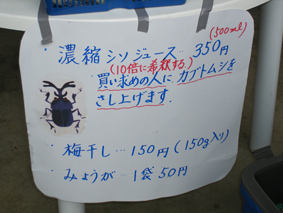 (500ml)
・濃縮シソジュース 350円
(10倍に希釈する)
買い求めの人に、カブトムシを
さし上げます.
・梅干し…150円(150g入り)
・みょうが…1袋50円